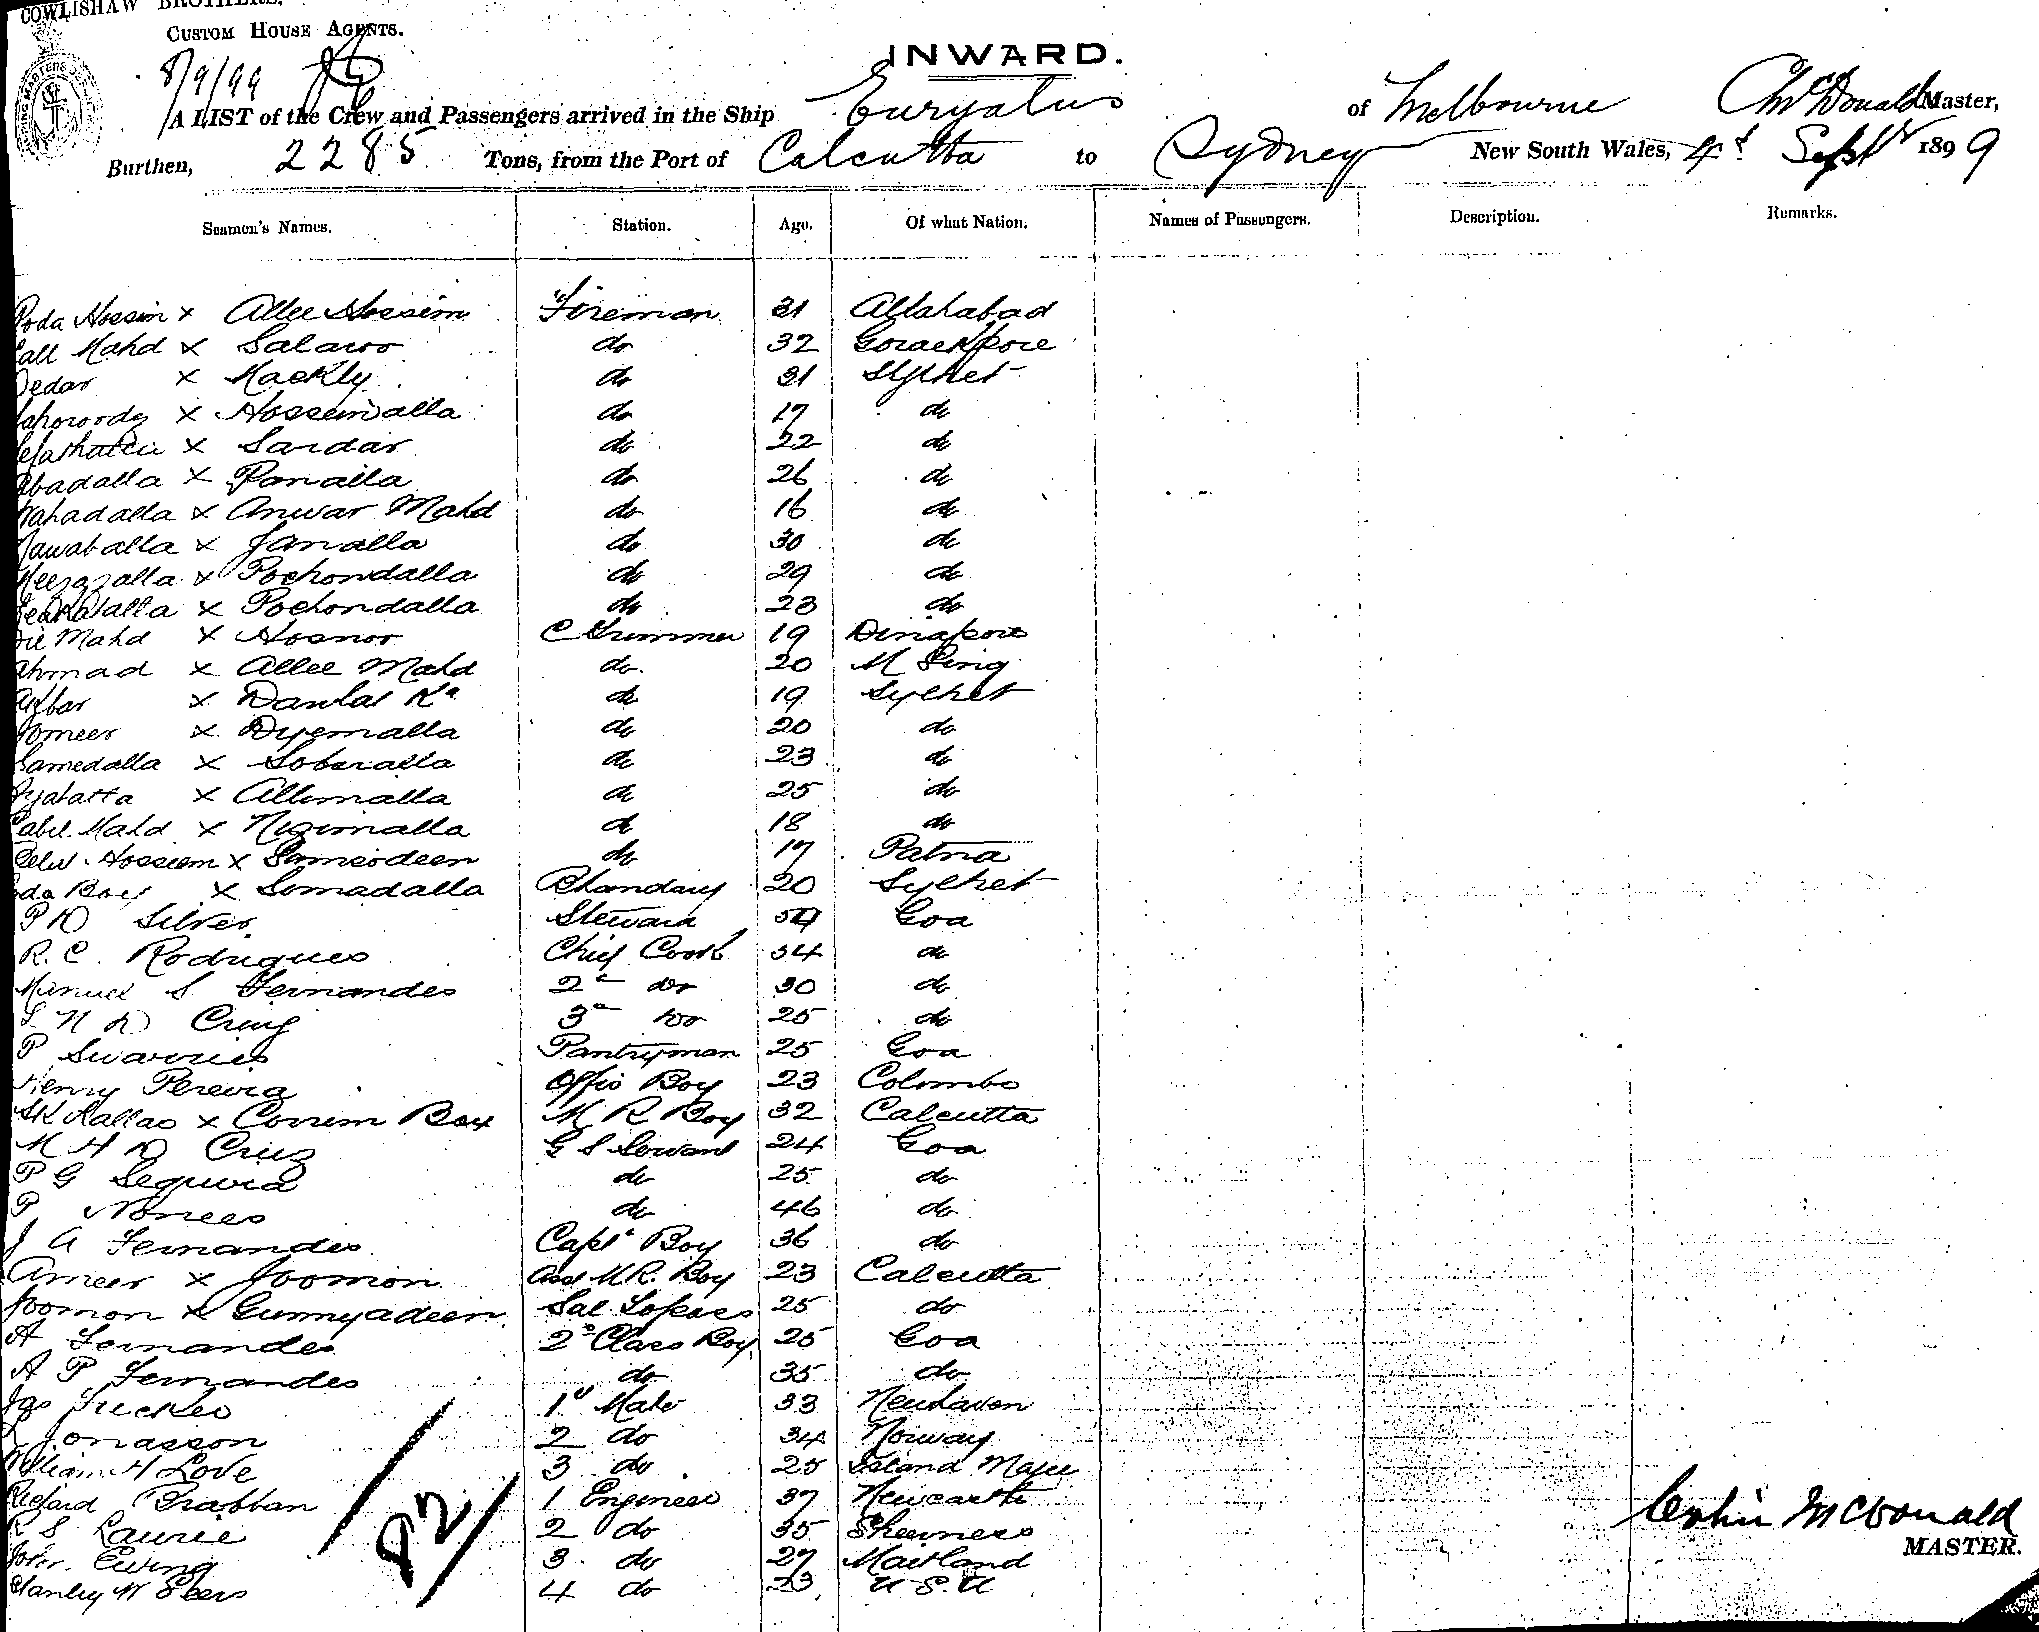 COWLISHAW BROTHERS,
CUSTOM HOUSE AGENTS.
8/9/99
INWARD.
A LIST of the Crew and Passengers arrived in the Ship Euryalus of Melbourne Ch McDonald Master,
Burthen, 2285 Tons, from the Port of Calcutta to Sydney New South Wales, 4th Septr 1899
Seamen's Names. Station. Age. Of what Nation. Names of Passengers. Description. Remarks.
Hossin x Allee Hossim Fireman 31 Allahabad
Mahd x Salaroo do 32 Gorackpore
Dedar x Mackly do 31 Sylhet
x Hosseinalla do 17 do
x Sardar do 22 do
Abadalla x Panalla do 26 do
x Anwar Mahd do 16 do
x Janalla do 30 do
x Pochondalla do 29 do
x Pochondalla do 23 do
Mahd x Hosnor C Trimmer 19 Dinapore
Ahmad x Allee Mahd do 20 M Sing
Akbar x Daulat Ka do 19 Sylhet
x Dyemalla do 20 do
Samedalla x Soberalla do 23 do
x Allimalla do 25 do
Mahd x Nizimalla do 18 do
Hossien x Sameodeen do 17 Patna
x Somadalla Bhandary 20 Sylhet
P D Silver Steward Goa
R. C. Rodrigues Chief Cook 34 do
Manuel S Fernandes 2d do 30 do
D Cruz 3d do 25 do
P Swarries Pantryman 25 Goa
Henry Pereira Offrs Boy 23 Colombo
SK Kallao x Corrim Box M R Boy 32 Calcutta
M H D Cruz G S Sewant 24 Goa
P G Sequira do 25 do
P Norees do 46 do
J A Fernandes Capts Boy 36 do
Ameer x Joomon Asst M.R. Boy 23 Calcutta
Joomon x Gunnyadeen Sal Topass 25 do
A Fernandes 2d Class Boy 25 Goa
A P Fernandes do 35 do
Jas Tucker 1st Mate 33 Newhaven
Jonasson 2 do 34 Norway
William H Love 3 do 25 Island Magee
Richard Brabban 1 Engineer 37 Newcastle
S Laurie 2 do 35 Sheerness
John Ewing 3 do 27 Maitland
Stanley W Speers 4 do 23 U S. A
82
Colin McDonald
MASTER.